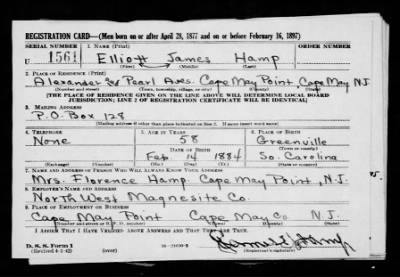 REGISTRATION CARD—(Men born on or after April 28, 1877 and on or before February 16, 1897)
SERIAL NUMBER 1. NAME (Print)
U 1561 Elliott James Hamp
(First) (Middle) (Last)
2. PLACE OF RESIDENCE (Print)
Alexander & Pearl Aves. Cape May Point, Cape May N.J.
(Number and street) (Town, township, village, or city) (County) (State)
[THE PLACE OF RESIDENCE GIVEN ON THE LINE ABOVE WILL DETERMINE LOCAL BOARD
JURISDICTION; LINE 2 OF REGISTRATION CERTIFICATE WILL BE IDENTICAL]
3. MAILING ADDRESS
P.O. Box 128
[Mailing address if other than place indicated on line 2. If same insert word same]
4. TELEPHONE 5. AGE IN YEARS 6. PLACE OF BIRTH
None 58 Greenville
DATE OF BIRTH (Town or county)
Feb. 14 1884 So. Carolina
(Exchange) (Number) (Mo.) (Day) (Yr.) (State or country)
7. NAME AND ADDRESS OF PERSON WHO WILL ALWAYS KNOW YOUR ADDRESS
Mrs. Florence Hamp Cape May Point, N.J.
8. EMPLOYER'S NAME AND ADDRESS
North West Magnesite Co.
9. PLACE OF EMPLOYMENT OR BUSINESS
Cape May Point Cape May Co. N.J.
(Number and street or R. F. D. number) (Town) (County) (State)
I AFFIRM THAT I HAVE VERIFIED ABOVE ANSWERS AND THAT THEY ARE TRUE.
D. S. S. Form 1
(Revised 4-1-42) 16-21630-2